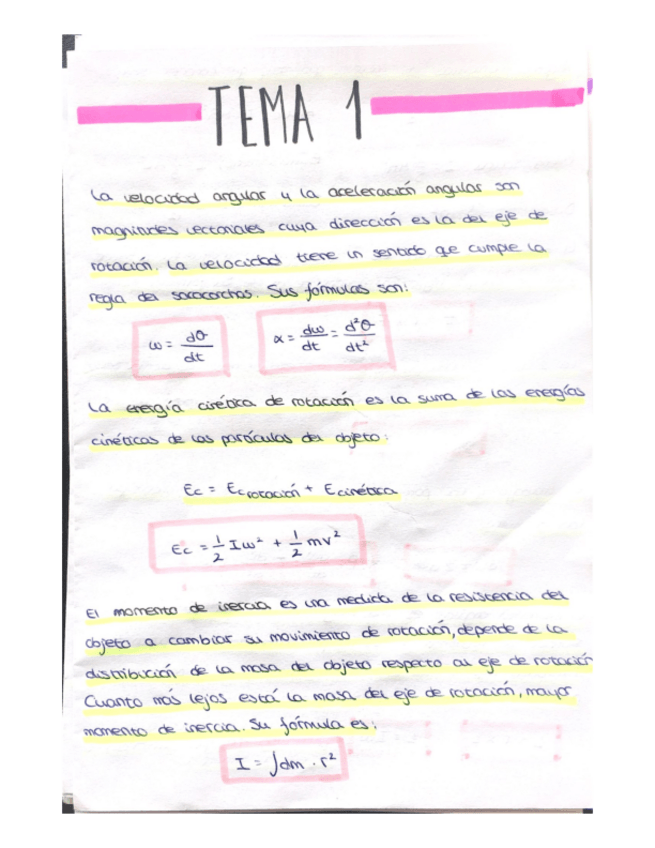 TEMA 1
La velocidad angular y la aceleración angular son
magnitudes vectoriales cuya dirección es la del eje de
rotación. La velocidad tiene un sentido que cumple la
regla del sacacorchos. Sus fórmulas son:
ω = dθ/dt    α = dω/dt = d²θ/dt²
La energía cinética de rotación es la suma de las energías
cinéticas de las partículas del objeto:
Ec = Ec rotación + E cinética
Ec = 1/2 Iω² + 1/2 mv²
El momento de inercia es una medida de la resistencia del
objeto a cambiar su movimiento de rotación, depende de la
distribución de la masa del objeto respecto al eje de rotación
Cuanto más lejos está la masa del eje de rotación, mayor
momento de inercia. Su fórmula es:
I = ∫dm · r²